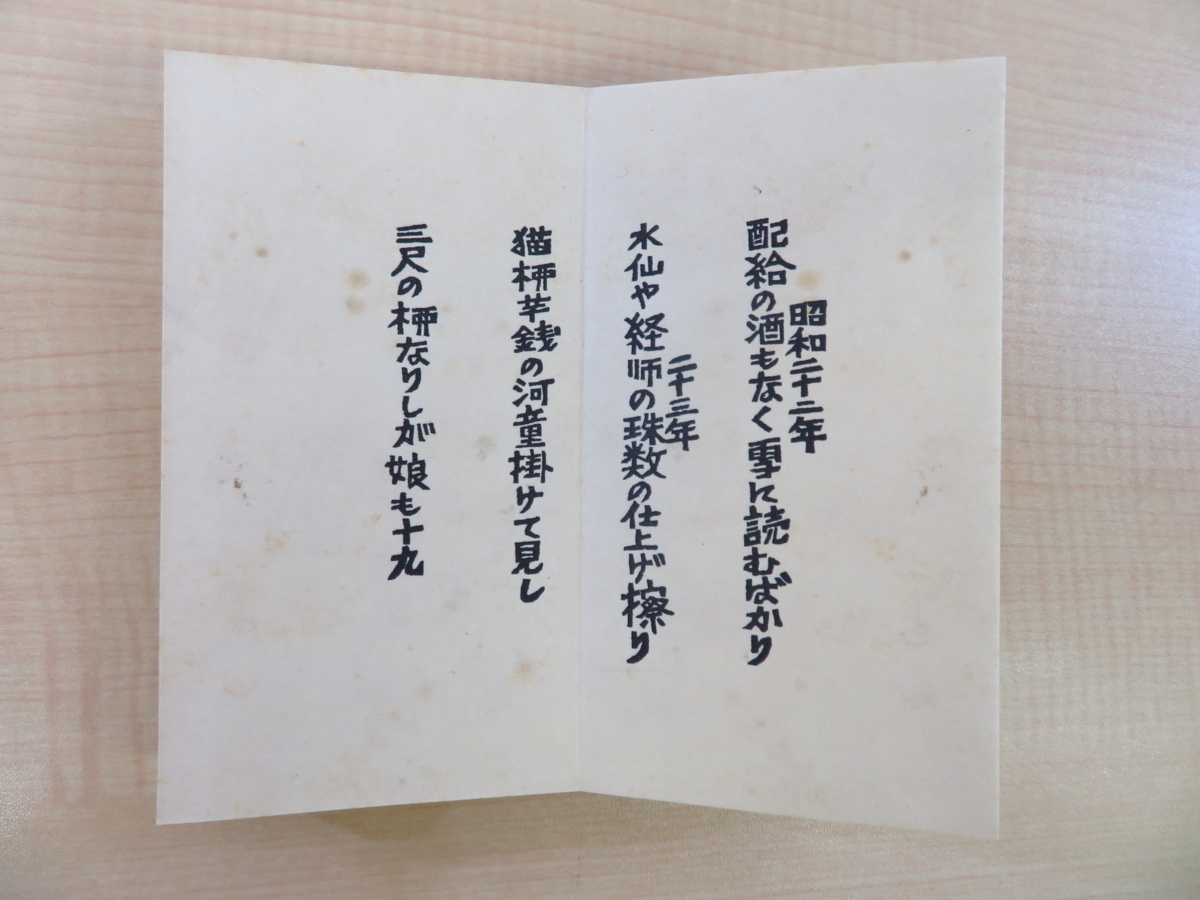 昭和二十二年
配給の酒もなく雪に読むばかり
二十三年
水仙や経師の珠数の仕上げ擦り
猫柳芋銭の河童掛けて見し
三尺の柳なりしが娘も十九